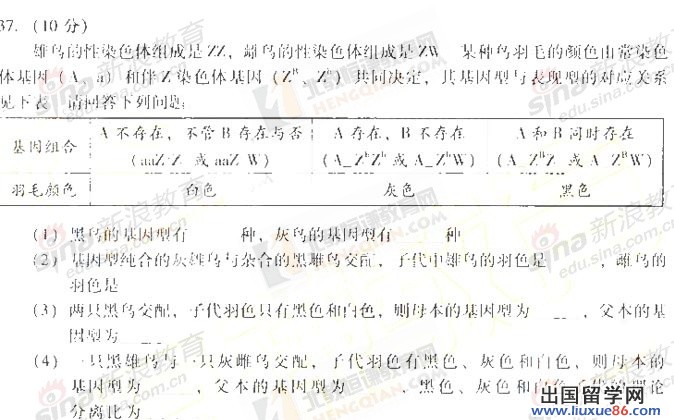 37. (10 分)
雄鸟的性染色体组成是ZZ, 雌鸟的性染色体组成是ZW。某种鸟羽毛的颜色由常染色
体基因 (A、a) 和伴Z染色体基因 (Zᴮ、Zᵇ) 共同决定, 其基因型与表现型的对应关系
见下表。请回答下列问题:
基因组合 A 不存在, 不管 B 存在与否 (aaZ_Z_ 或 aaZ_W) A 存在, B 不存在 (A_ZᵇZᵇ 或 A_ZᵇW) A 和 B 同时存在 (A_ZᴮZ_ 或 A_ZᴮW)
羽毛颜色 白色 灰色 黑色
(1) 黑鸟的基因型有 种, 灰鸟的基因型有 种
(2) 基因型纯合的灰雄鸟与杂合的黑雌鸟交配, 子代中雄鸟的羽色是 , 雌鸟的
羽色是
(3) 两只黑鸟交配, 子代羽色只有黑色和白色, 则母本的基因型为 , 父本的基
因型为
(4) 一只黑雄鸟与一只灰雌鸟交配, 子代羽色有黑色、灰色和白色, 则母本的
基因型为 , 父本的基因型为 , 黑色、灰色和白色子代的理论
分离比为
新浪教育
edu.sina.com.cn
北京恒课教育
HENGQIAN.COM
出国留学网
www.liuxue86.com